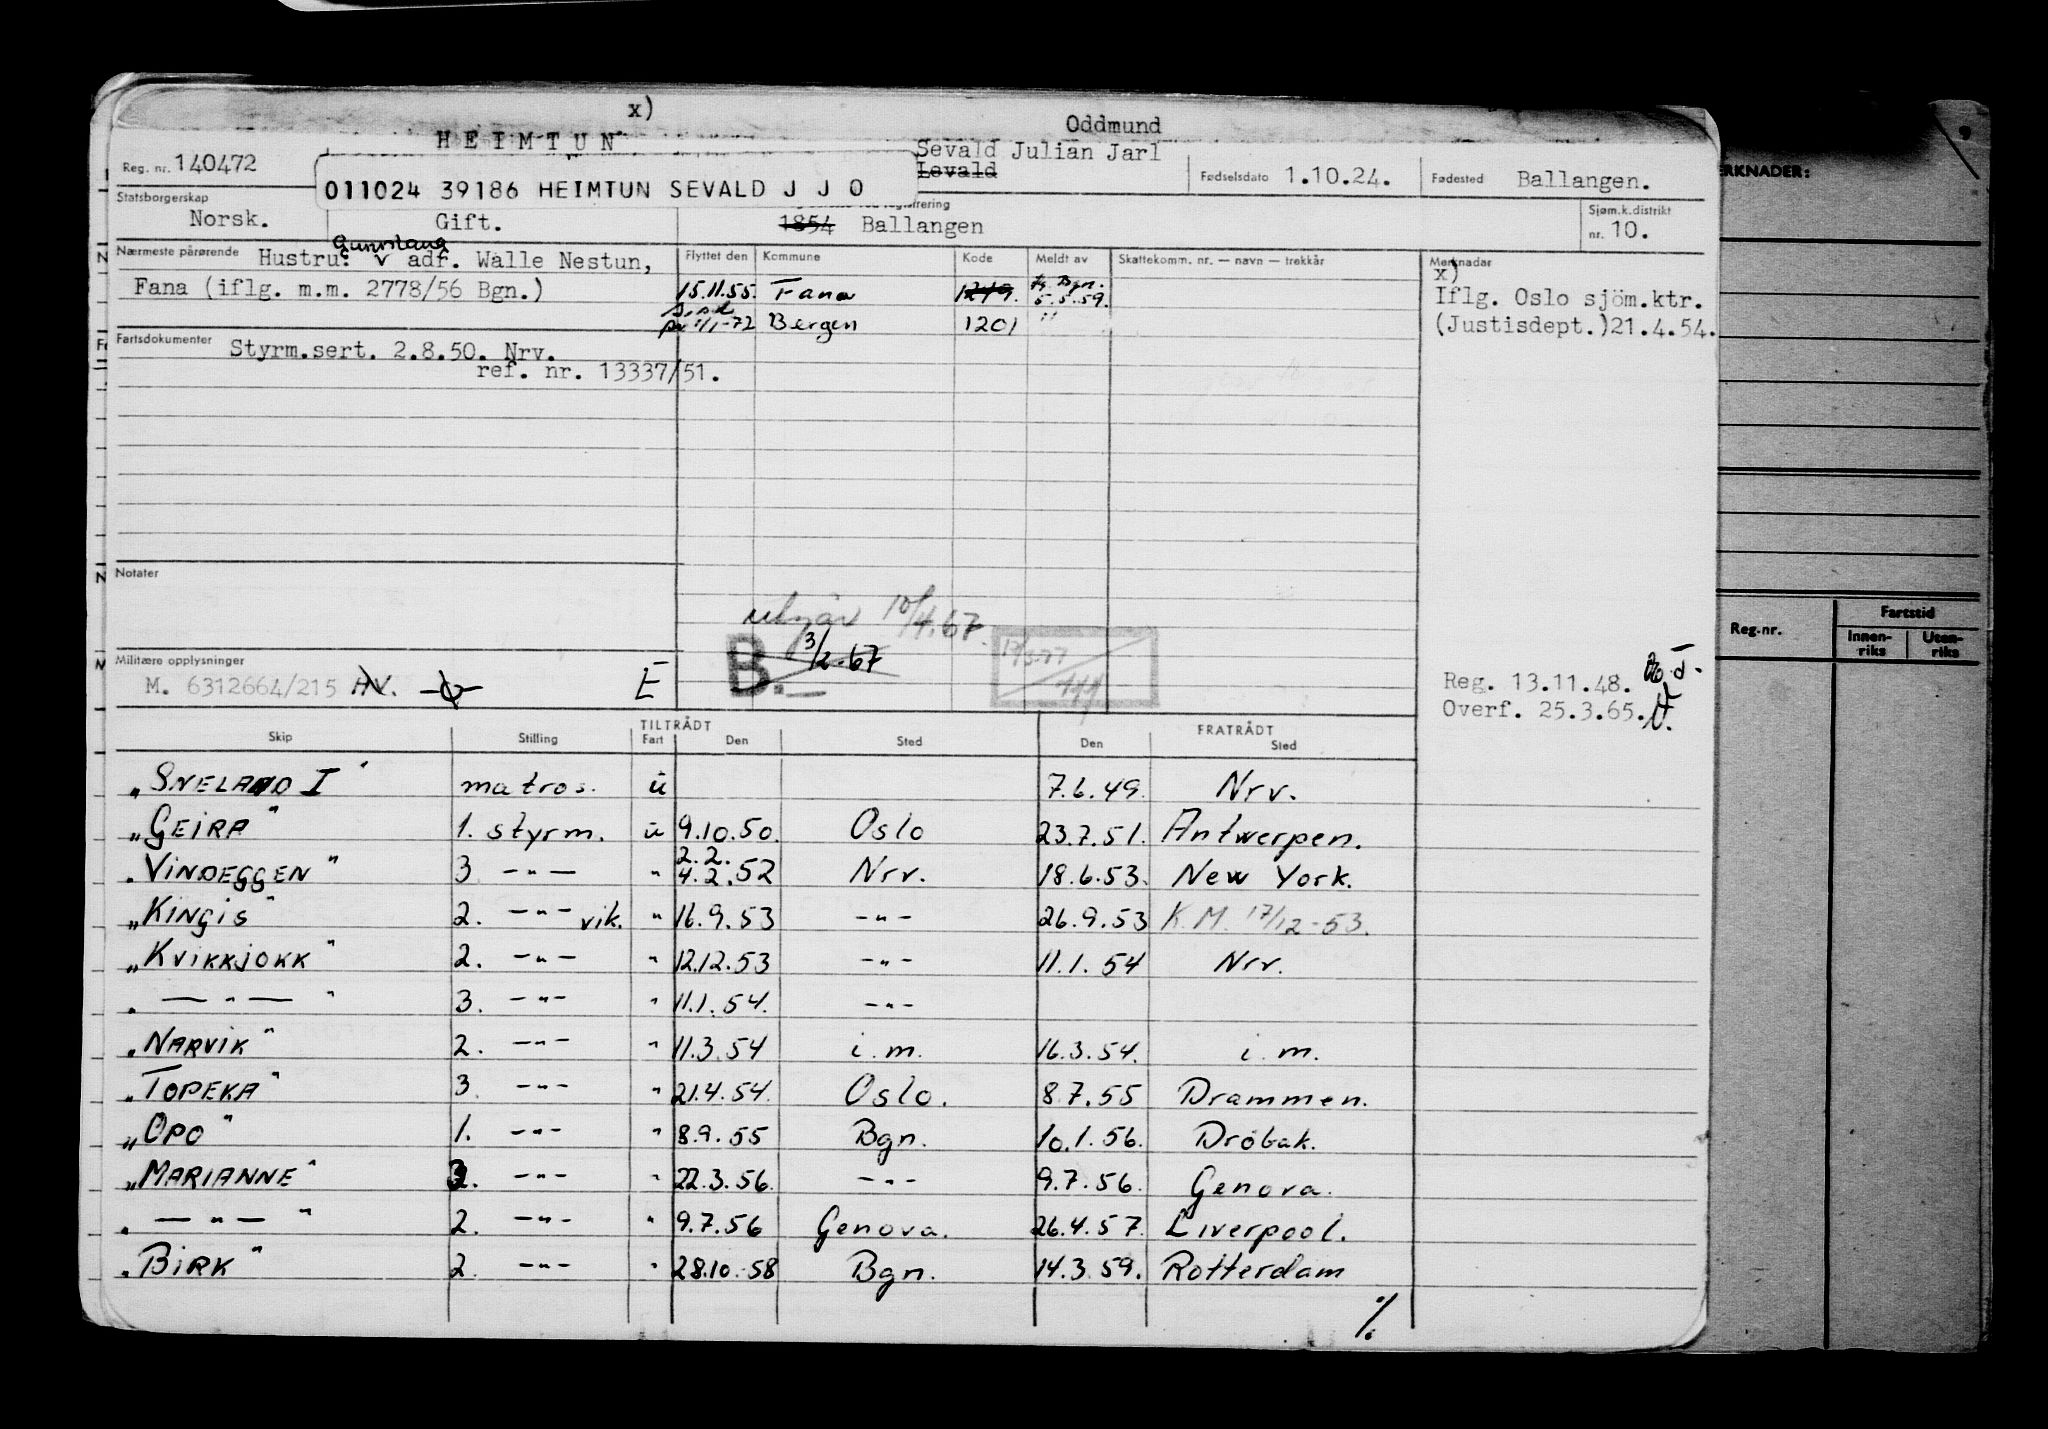 x)
HEIMTUN
Oddmund
Sevald Julian Jarl
Levald
Reg. nr. 140472
011024 39186 HEIMTUN SEVALD J J O
Fødselsdato 1.10.24.
Fødested Ballangen.
Statsborgerskap
Norsk.
Gift.
1854 Ballangen
Sjøm.k.distrikt
nr. 10.
Nærmeste pårørende Hustru: Gunnlaug v adr. Walle Nestun,
Fana (iflg. m.m. 2778/56 Bgn.)
Flyttet den Kommune Kode Meldt av Skattekomm. nr. — navn — trekkår
15.11.55. Fana 1249. fr. Bgn. 5.5.59.
pr 1/1-72 Bergen 1201 "
Merknader
x)
Iflg. Oslo sjöm.ktr.
(Justisdept.)21.4.54.
Fartsdokumenter Styrm.sert. 2.8.50. Nrv.
ref. nr. 13337/51.
Notater
utgår 10/4.67.
B. 3/2-67
Militære opplysninger
M. 6312664/215 HV.
E
Reg. 13.11.48.
Overf. 25.3.65.
TILTRÅDT FRATRÅDT
Skip Stilling Fart Den Sted Den Sted
"SNELAND I" matros. u 7.6.49. Nrv.
"GEIRA" 1. styrm. u 9.10.50. Oslo 23.7.51. Antwerpen.
2.2.
"VINDEGGEN" 3 -"- " 4.2.52 Nrv. 18.6.53. New York.
"KINGIS" 2. -"- vik. " 16.9.53 -"- 26.9.53 K.M. 17/12-53.
"KVIKKJOKK" 2. -"- " 12.12.53 -"- 11.1.54 Nrv.
" -"- " 3. -"- " 11.1.54. -"-
"NARVIK" 2. -"- " 11.3.54 i.m. 16.3.54. i.m.
"TOPEKA" 3. -"- " 21.4.54. Oslo. 8.7.55 Drammen.
"OPO" 1. -"- " 8.9.55 Bgn. 10.1.56. Dröbak.
"MARIANNE" 3. -"- " 22.3.56. -"- 9.7.56. Genova.
" -"- " 2. -"- " 9.7.56 Genova. 26.4.57. Liverpool.
"BIRK" 2. -"- " 28.10.58 Bgn. 14.3.59. Rotterdam
%
ERKNADER:
9
Reg.nr.
Fartstid
Innen-
riks
Uten-
riks